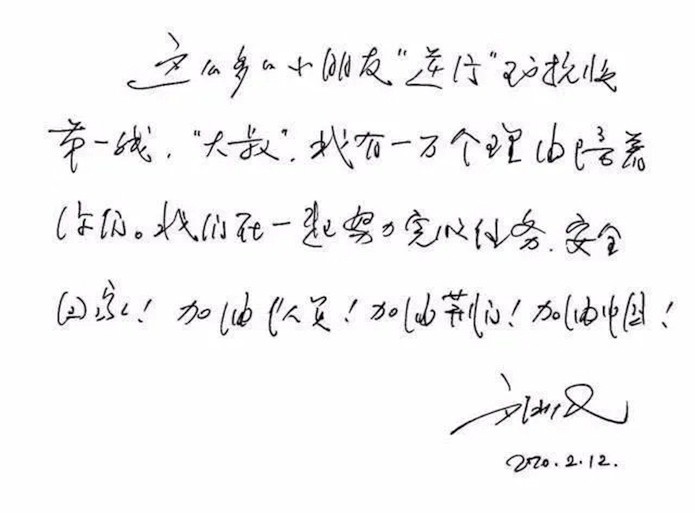 这么多小朋友“逆行”到抗疫
第一线，“大叔”，我有一万个理由陪着
你们。我们在一起努力完成任务、安全
回家！加油队员！加油荆门！加油中国！
2020.2.12.